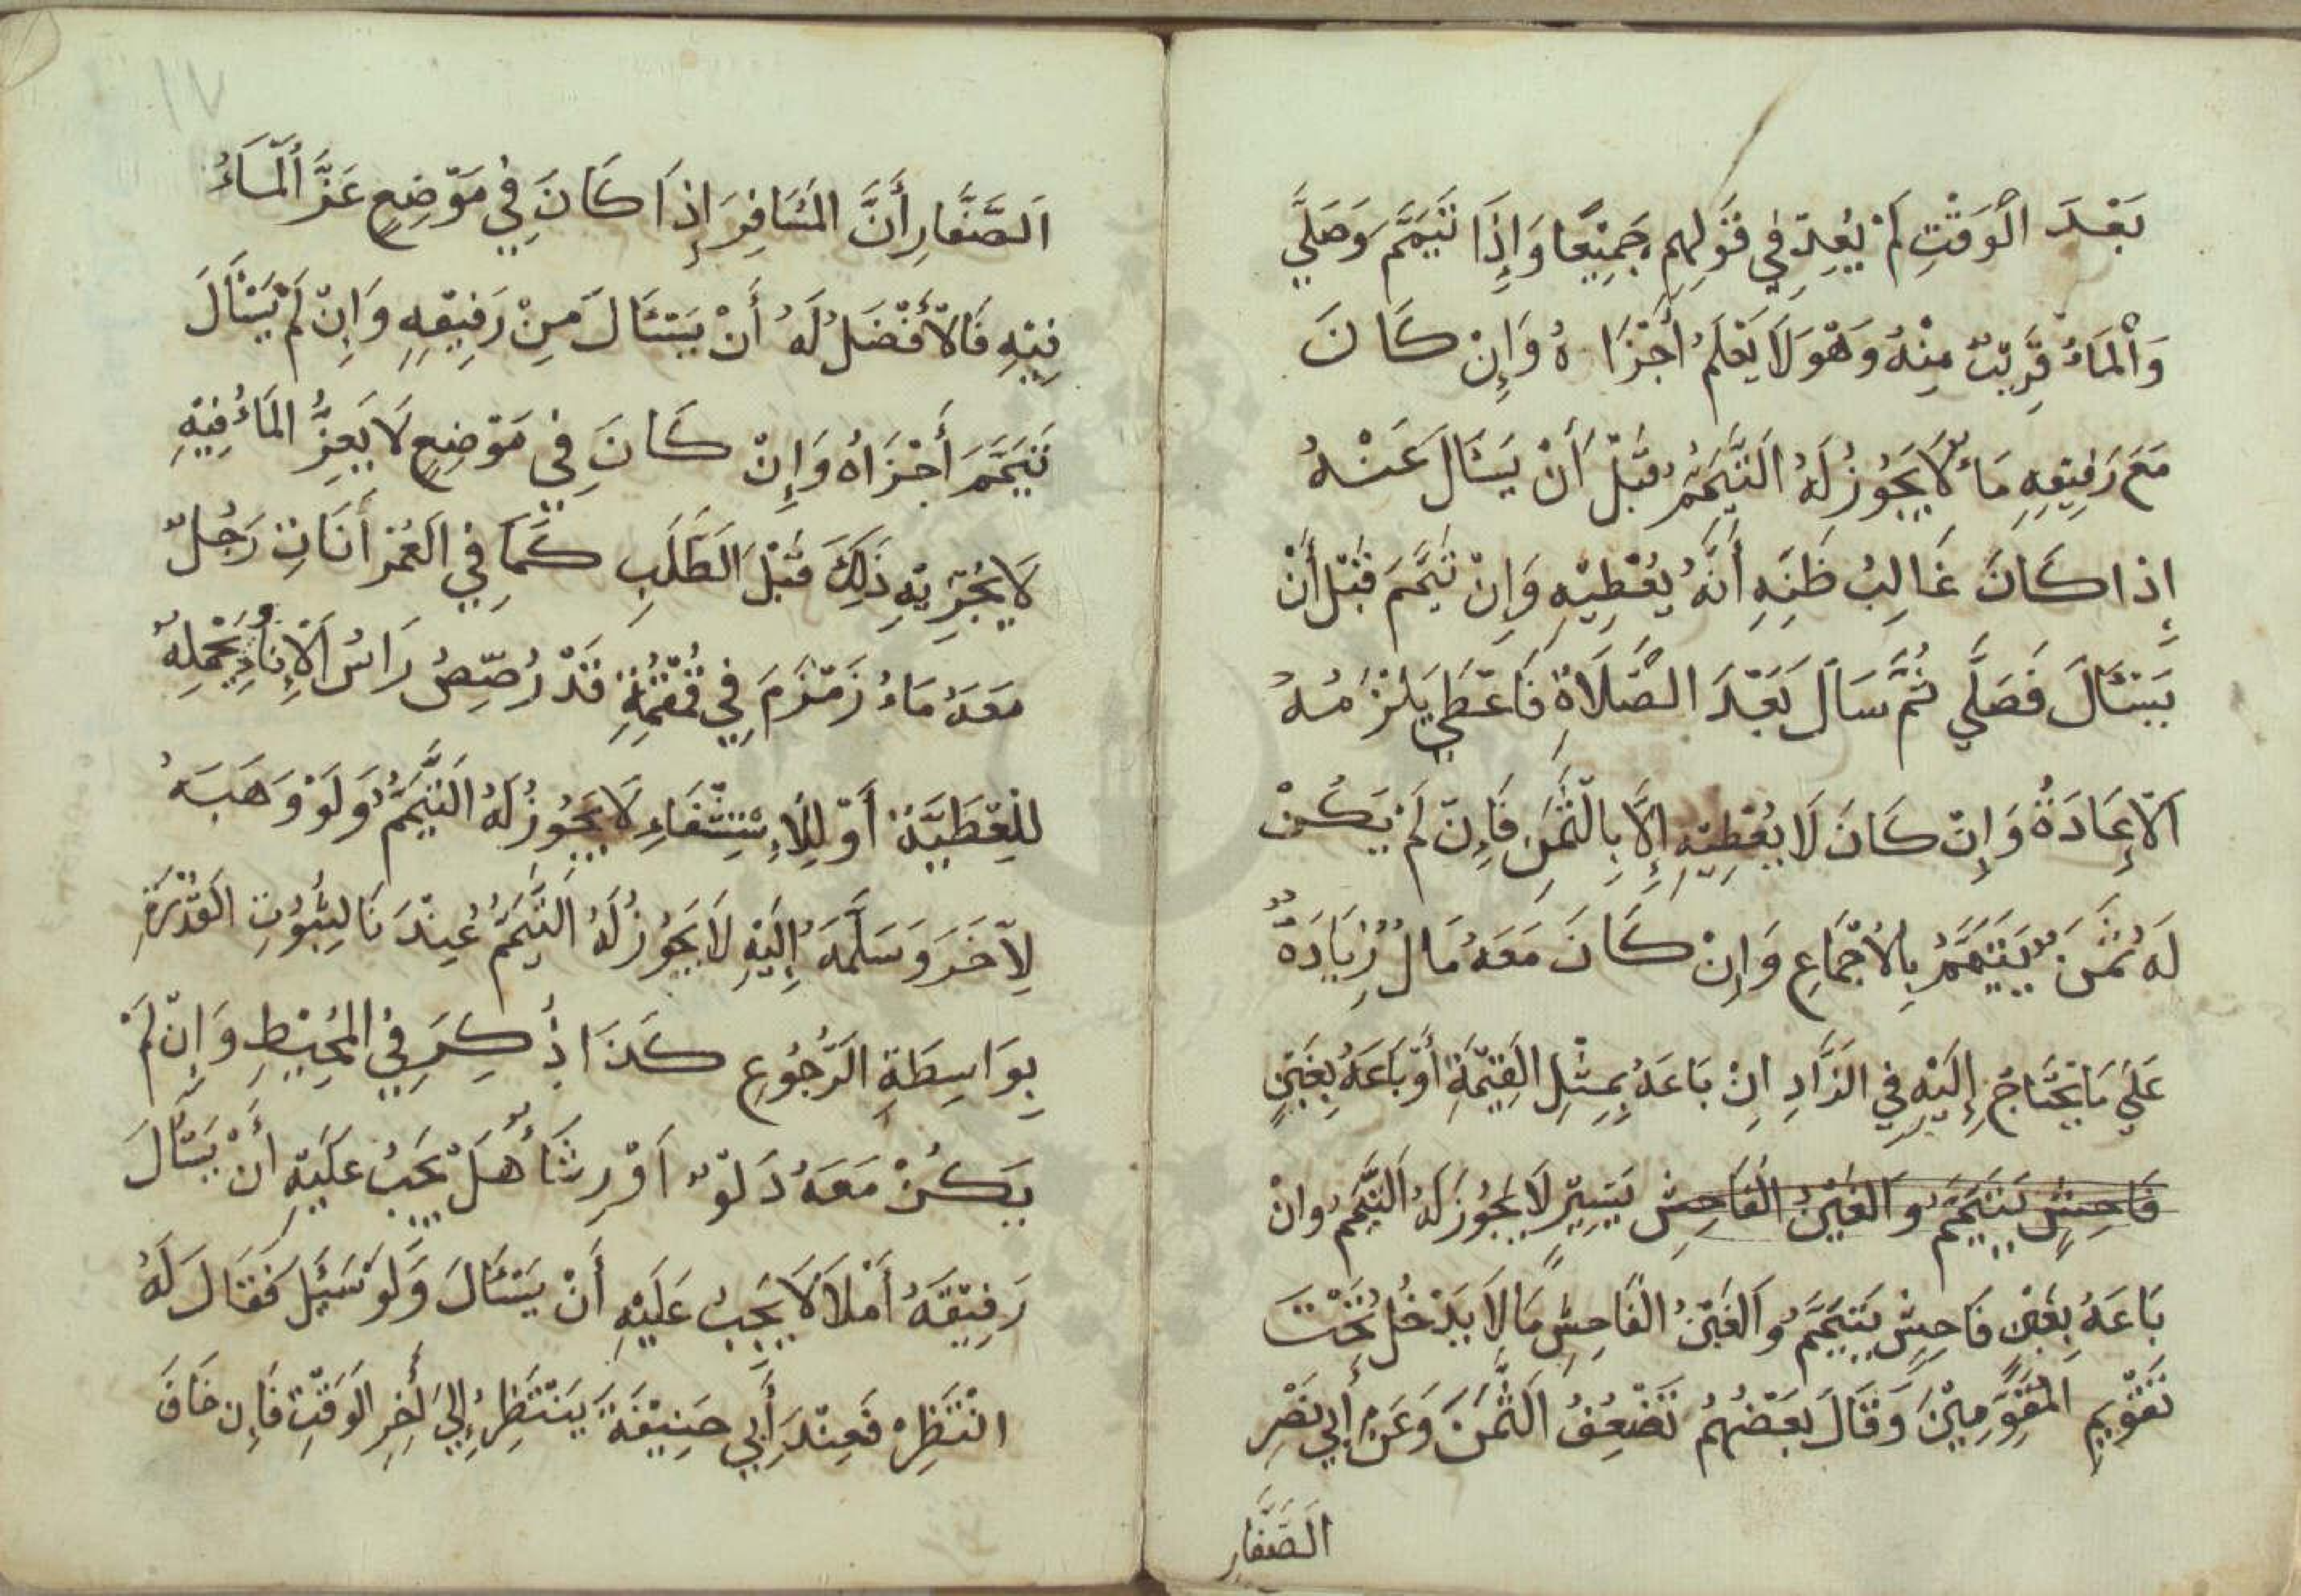 بَعْدَ الْوَقْتِ لَمْ يُعِدْ فِي قَوْلِهِمْ جَمِيْعًا وَإِذَا تَيَمَّمَ وَصَلَّي
وَالْمَاءُ قَرِيْبٌ مِنْهُ وَهْوَ لَا يَعْلَمُ أَجْزَاهُ وَإِنْ كَانَ
مَعَ رَفِيقِهِ مَاءٌ لَا يَجُوزُ لَهُ التَّيَمُّمُ قَبْلَ أَنْ يَسْئَالَ عَنْهُ
إِذَا كَانَ غَالِبُ ظَنِّهِ أَنَّهُ يُعْطِيْهِ وَإِنْ تَيَمَّمَ قَبْلَ أَنْ
يَسْئَالَ فَصَلَّي ثُمَّ سَاَلَ بَعْدَ الصَّلَاةِ فَاَعْطَي يَلْزَمُهُ
الْإِعَادَةُ وَإِنْ كَانَ لَا يُعْطِيْهِ إِلَّا بِالثَّمَنِ فَإِنْ لَمْ يَكُنْ
لَهُ ثَمَنٌ يَتَيَمَّمُ بِالْاِجْمَاعِ وَإِنْ كَانَ مَعَهُ مَالٌ زِيَادَةٌ
عَلَي مَا يَحْتَاجُ إِلَيْهِ فِي الزَّادِ اِنْ بَاعَهُ بِمِثْلِ الْقِيْمَةِ أَوْ بَاعَهُ بِغَبْنٍ
فَاحِشٍ يَتَيَمَّمُ وَالْغَبْنُ الْفَاحِشُ يَسِيْرٍ لَا يَجُوزُ لَهُ التَّيَمُّمُ وَانْ
بَاعَهُ بِغَبْنٍ فَاحِشٍ يَتَيَمَّمُ وَالْغَبْنُ الْفَاحِشُ مَا لَا يَدْخُلُ تَحْتَ
تَقْوِيمِ الْمُقَوِّمِيْنَ وَقَالَ بَعْضُهُمْ تَضْعُفُ الثَّمَنَ وَعَنْ أَبِي نَصْرِ
الصَّفَّارِ
١٧
الصَّفَّارِ أَنَّ الْمُسَافِرَ إِذَا كَانَ فِي مَوْضِعٍ عَزَّ الْمَاءُ
فِيْهِ فَالْأَفْضَلُ لَهُ أَنْ يَسْئَالَ مِنْ رَفِيْقِهِ وَإِنْ لَمْ يَسْئَالَ
تَيَمَّمَ أَجْزَاهُ وَإِنْ كَانَ فِي مَوْضِعٍ لَا يَعِزُّ الْمَاءُ فِيْهِ
لَا يُجْزِيْهِ ذَلِكَ قَبْلَ الطَّلَبِ كَمَا فِي الْعُمْرَانَاتِ رَجُلٌ
مَعَهُ مَاءُ زَمْزَمَ فِي قُمْقُمَةٍ قَدْ رُصِّصُ رَاسُ الْاِنَاءِ يَحْمِلُهُ
لِلْعَطِيَّةِ أَوْ لِلْاِسْتِشْفَاءِ لَا يَجُوزُ لَهُ التَّيَمُّمُ وَلَوْ وَهَبَهُ
لِآخَرَ وَسَلَّمَهُ إِلَيْهِ لَا يَجُوزُ لَهُ التَّيَمُّمُ عِنْدَنَا لِثُبُوْتِ الْقُدْرَةِ
بِوَاسِطَةِ الرُّجُوعِ كَذَا ذُكِرَ فِي الْمُحِيْطِ وَإِنْ لَمْ
يَكُنْ مَعَهُ دَلْوٌ اَوْ رِشَاءٌ هَلْ يَجِبُ عَلَيْهِ أَنْ يَسْئَالَ
رَفِيْقَهُ أَمْلَا لَا يَجِبُ عَلَيْهِ أَنْ يَسْئَالَ وَلَوْ سَئَلَ فَقَالَ لَهُ
انْتَظِرْ فَعِنْدَ أَبِي حَنِيْفَةَ يَنْتَظِرُ إِلَي أَخِرِ الْوَقْتِ فَإِنْ خَافَ